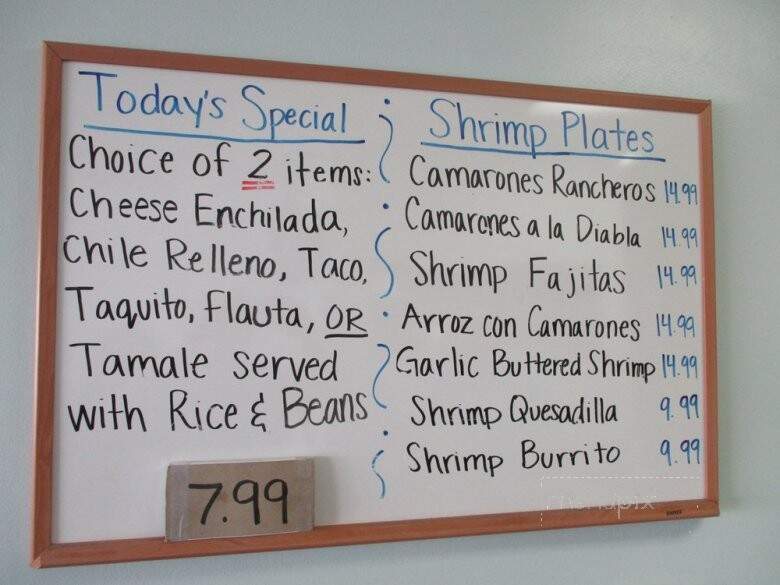 Today's Special
Choice of 2 items:
Cheese Enchilada,
Chile Relleno, Taco,
Taquito, Flauta, OR
Tamale served
with Rice & Beans
7.99
Shrimp Plates
Camarones Rancheros 14.99
Camarones a la Diabla 14.99
Shrimp Fajitas 14.99
Arroz con Camarones 14.99
Garlic Buttered Shrimp 14.99
Shrimp Quesadilla 9.99
Shrimp Burrito 9.99